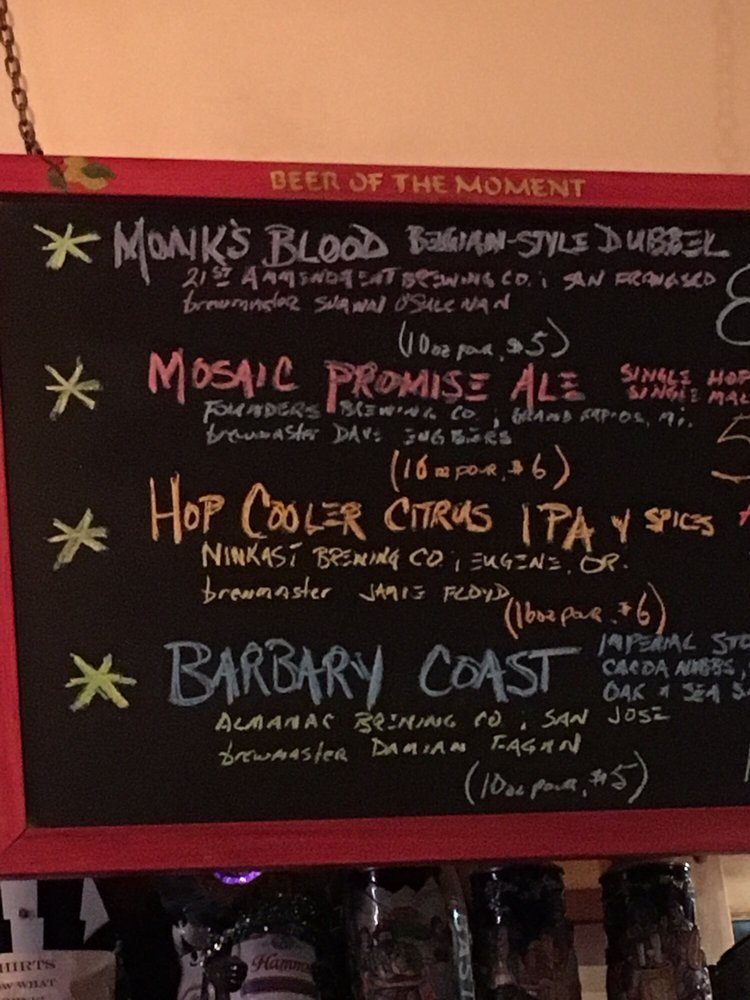 BEER OF THE MOMENT
MONK'S BLOOD BELGIAN-STYLE DUBBEL
21ST AMMENDMENT BREWING CO.; SAN FRANCISCO
brewmaster SHAWN O'SULLIVAN
(10oz pour, $5)
MOSAIC PROMISE ALE SINGLE HOP
SINGLE MAL
FOUNDERS BREWING CO.; GRAND RAPIDS, MI.
brewmaster DAVE ENGBERS
(16oz pour, $6)
HOP COOLER CITRUS IPA SPICES
NINKASI BREWING CO.; EUGENE, OR.
brewmaster JAMIE FLOYD
(16oz pour, $6)
BARBARY COAST IMPERIAL STO
CACOA NIBBS,
OAK & SEA S
ALMANAC BREWING CO.; SAN JOSE
brewmaster DAMIAN FAGAN
(10oz pour, $5)
HIRTS
OW WHAT
Hamm